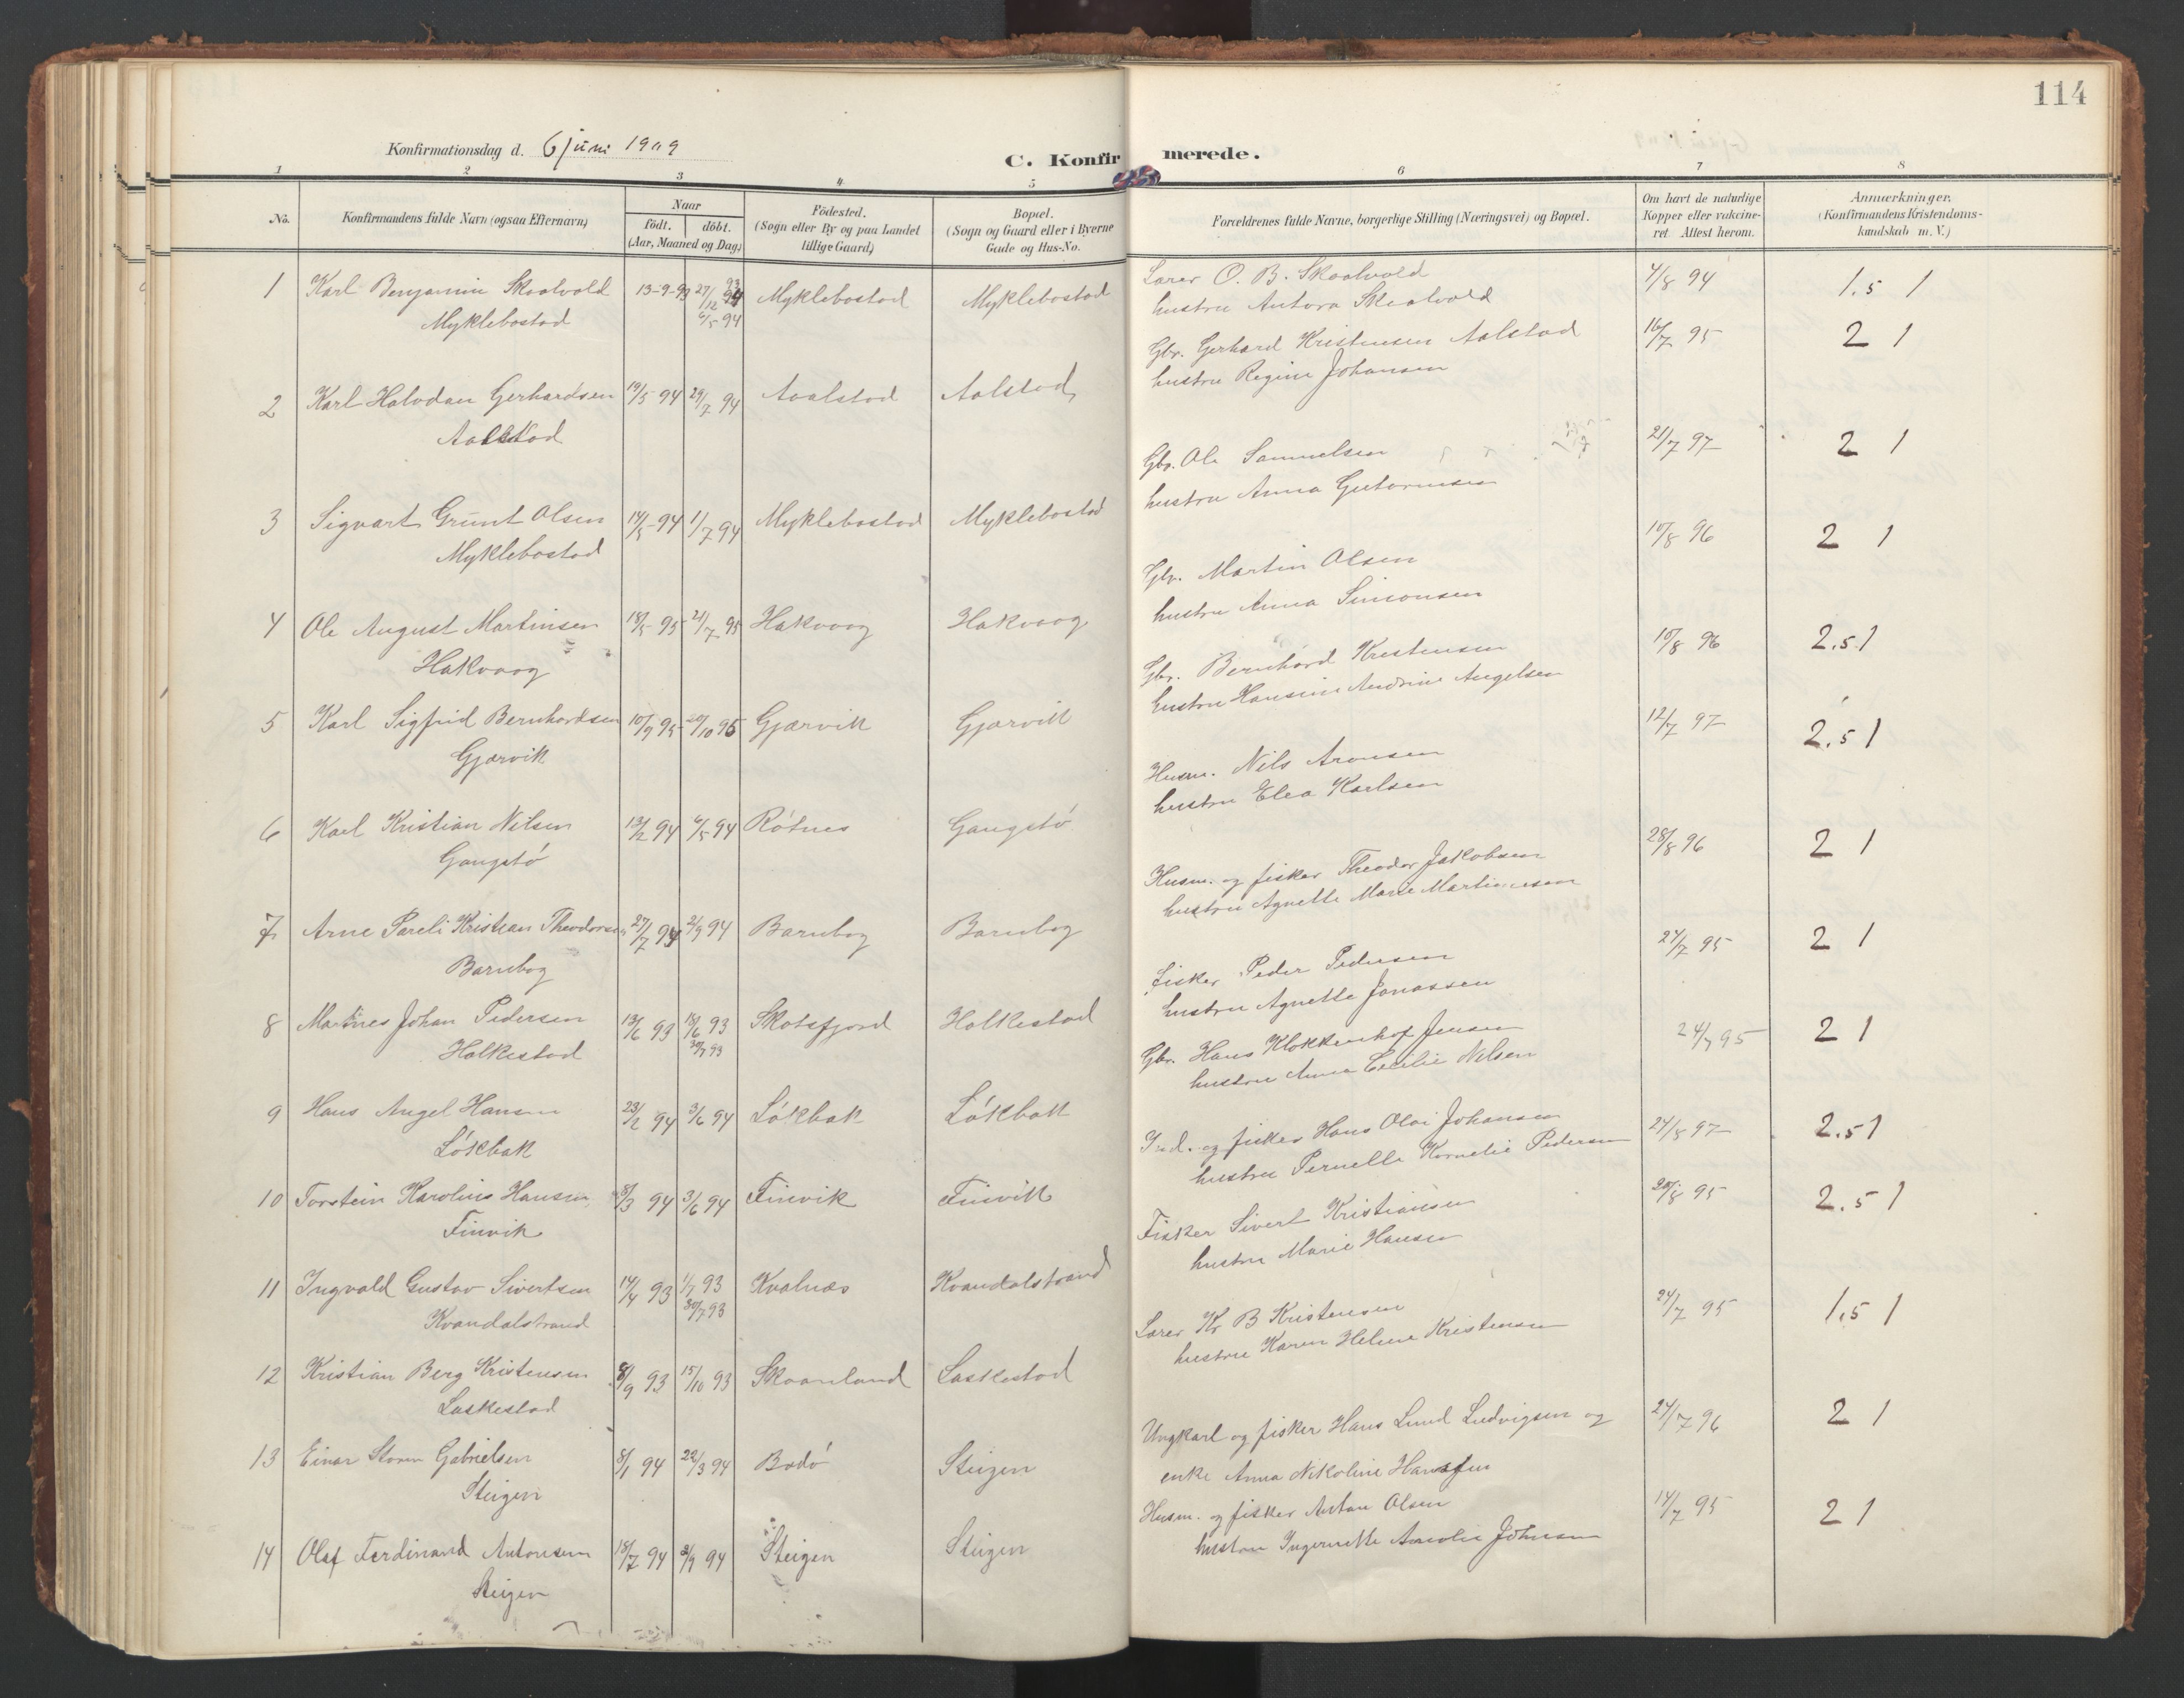 114
Konfirmationsdag d. 6 juni 1909
C. Konfirmerede.
1 2 3 4 5 6 7 8
No.
Konfirmandens fulde Navn (ogsaa Efternavn)
Naar
födt. döbt.
(Aar, Maaned og Dag)
Födested.
(Sogn eller By og paa Landet
tillige Gaard)
Bopæl.
(Sogn og Gaard eller i Byerne
Gade og Hus-No.
Forældrenes fulde Navne, borgerlige Stilling (Næringsvei) og Bopæl.
Om havt de naturlige
Kopper eller vakcine-
ret Attest herom.
Anmærkninger.
(Konfirmandens Kristendoms-
kundskab m. V.)
1 Karl Benjamin Skaalvold 13-9-93 27/12 93 Myklebostad Myklebostad Lærer O. B. Skaalvold 4/8 94 1.5 1
Myklebostad 6/5 94 hustru Antora Skaalvold
2 Karl Halvdan Gerhardsen 19/5 94 29/7 94 Aalstad Aalstad Gbr. Gerhard Kristensen Aalstad 16/7 95 2 1
Aalstad hustru Regine Johansen
3 Sigvart Grunt Olsen 14/5 94 1/7 94 Myklebostad Myklebostad Gbr. Ole Samuelsen 21/7 97 2 1
Myklebostad hustru Anna Gutormsen
4 Ole August Martinsen 18/5 95 21/7 95 Hakvaag Hakvaag Gbr. Martin Olsen 10/8 96 2 1
Hakvaag hustru Anna Simonsen
5 Karl Sigfrid Bernhardsen 10/9 95 20/10 95 Gjærvik Gjærvik Gbr. Bernhard Kristensen 10/8 96 2.5 1
Gjærvik hustru Hansine Andrine Angelsen
6 Karl Kristian Nilsen 13/2 94 6/5 94 Rötnes Gangstö Husm. Nils Aronsen 12/7 97 2.5 1
Gangstö hustru Elea Karlsen
7 Arne Pareli Kristian Theodorsen 27/7 94 2/9 94 Barnbog Barnbog Husm. og fisker Theodor Jakobsen 28/8 96 2 1
Barnbog hustru Agnette Marie Martinussen
8 Martines Johan Pedersen 13/6 93 18/6 93 Skotsfjord Holkestad Fisker Peder Pedersen 24/7 95 2 1
Holkestad 30/7 93 hustru Agnette Jonassen
9 Hans Angel Hansen 23/2 94 3/6 94 Lökbak Lökbak Gbr. Hans Klokkerhof Jensen 24/7 95 2 1
Lökbak hustru Anna Cecilie Nilsen
10 Torstein Karolius Hansen 8/3 94 3/6 94 Finvik Finvik Ind. og fisker Hans Olai Johansen 24/8 97 2.5 1
Finvik hustru Pernelle Kornelie Pedersen
11 Ingvald Gustav Sivertsen 14/4 93 1/7 93 Kvalnæs Kvandalstrand Fisker Sivert Kristiansen 20/8 95 2.5 1
Kvandalstrand 30/7 93 hustru Marie Hansen
12 Kristian Berg Kristensen 8/9 93 15/10 93 Skaanland Laskestad Lærer Kr B Kristensen 24/7 95 1.5 1
Laskestad hustru Karen Helene Kristensen
13 Einar Storm Gabrielsen 8/1 94 22/3 94 Bodö Steigen Ungkarl og fisker Hans Lund Ludvigsen og 24/7 96 2 1
Steigen enke Anna Nikoline Hansen
14 Olaf Ferdinand Antonsen 18/7 94 2/9 94 Steigen Steigen Husm. og fisker Anton Olsen 14/7 95 2 1
Steigen hustru Ingernette Amalie Johnsen